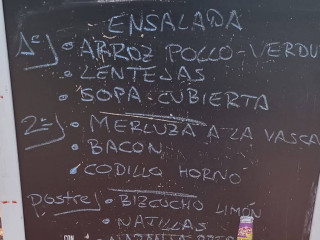 ENSALADA
1º • ARROZ POLLO-VERDU
• LENTEJAS
• SOPA-CUBIERTA
2º • MERLUZA A LA VASCA
• BACON
• CODILLO HORNO
postre • BIZCOCHO LIMÓN
• NATILLAS
CON NARANJA